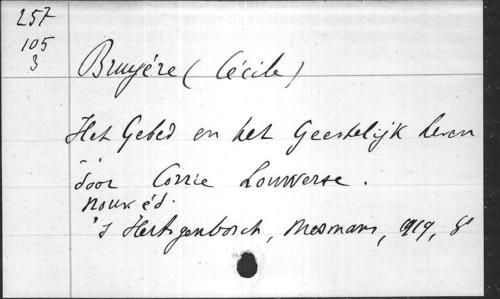 257
105
3
Bruyére (Cécile)
Het Gebed en het Geestelijk leven
door Corrie Louwerse.
nouv éd.
's Hertogenbosch, Mosmans, 1919, 8°